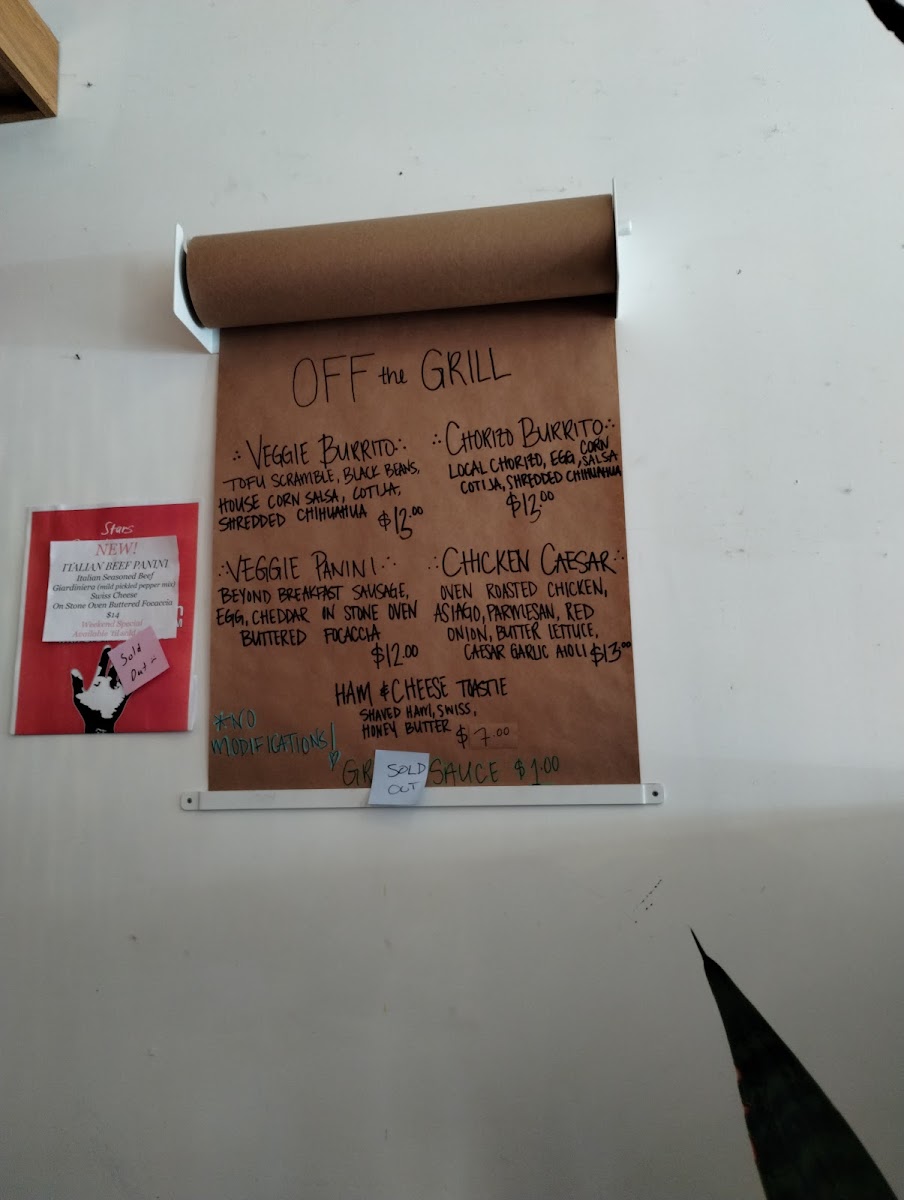 OFF the GRILL
VEGGIE BURRITO
TOFU SCRAMBLE, BLACK BEANS,
HOUSE CORN SALSA, COTIJA,
SHREDDED CHIHUAHUA $13.00
CHORIZO BURRITO
LOCAL CHORIZO, EGG, CORN SALSA
COTIJA, SHREDDED CHIHUAHUA
$13.00
VEGGIE PANINI
BEYOND BREAKFAST SAUSAGE,
EGG, CHEDDAR IN STONE OVEN
BUTTERED FOCACCIA
$12.00
CHICKEN CAESAR
OVEN ROASTED CHICKEN,
ASIAGO, PARMESAN, RED
ONION, BUTTER LETTUCE,
CAESAR GARLIC AIOLI $13.00
HAM & CHEESE TOASTIE
SHAVED HAM, SWISS,
HONEY BUTTER $7.00
*NO
MODIFICATIONS!
GR SAUCE $1.00
SOLD
OUT
Stars
NEW!
ITALIAN BEEF PANINI
Italian Seasoned Beef
Giardiniera (mild pickled pepper mix)
Swiss Cheese
On Stone Oven Buttered Focaccia
$14
Weekend Special
Available
Sold
Out